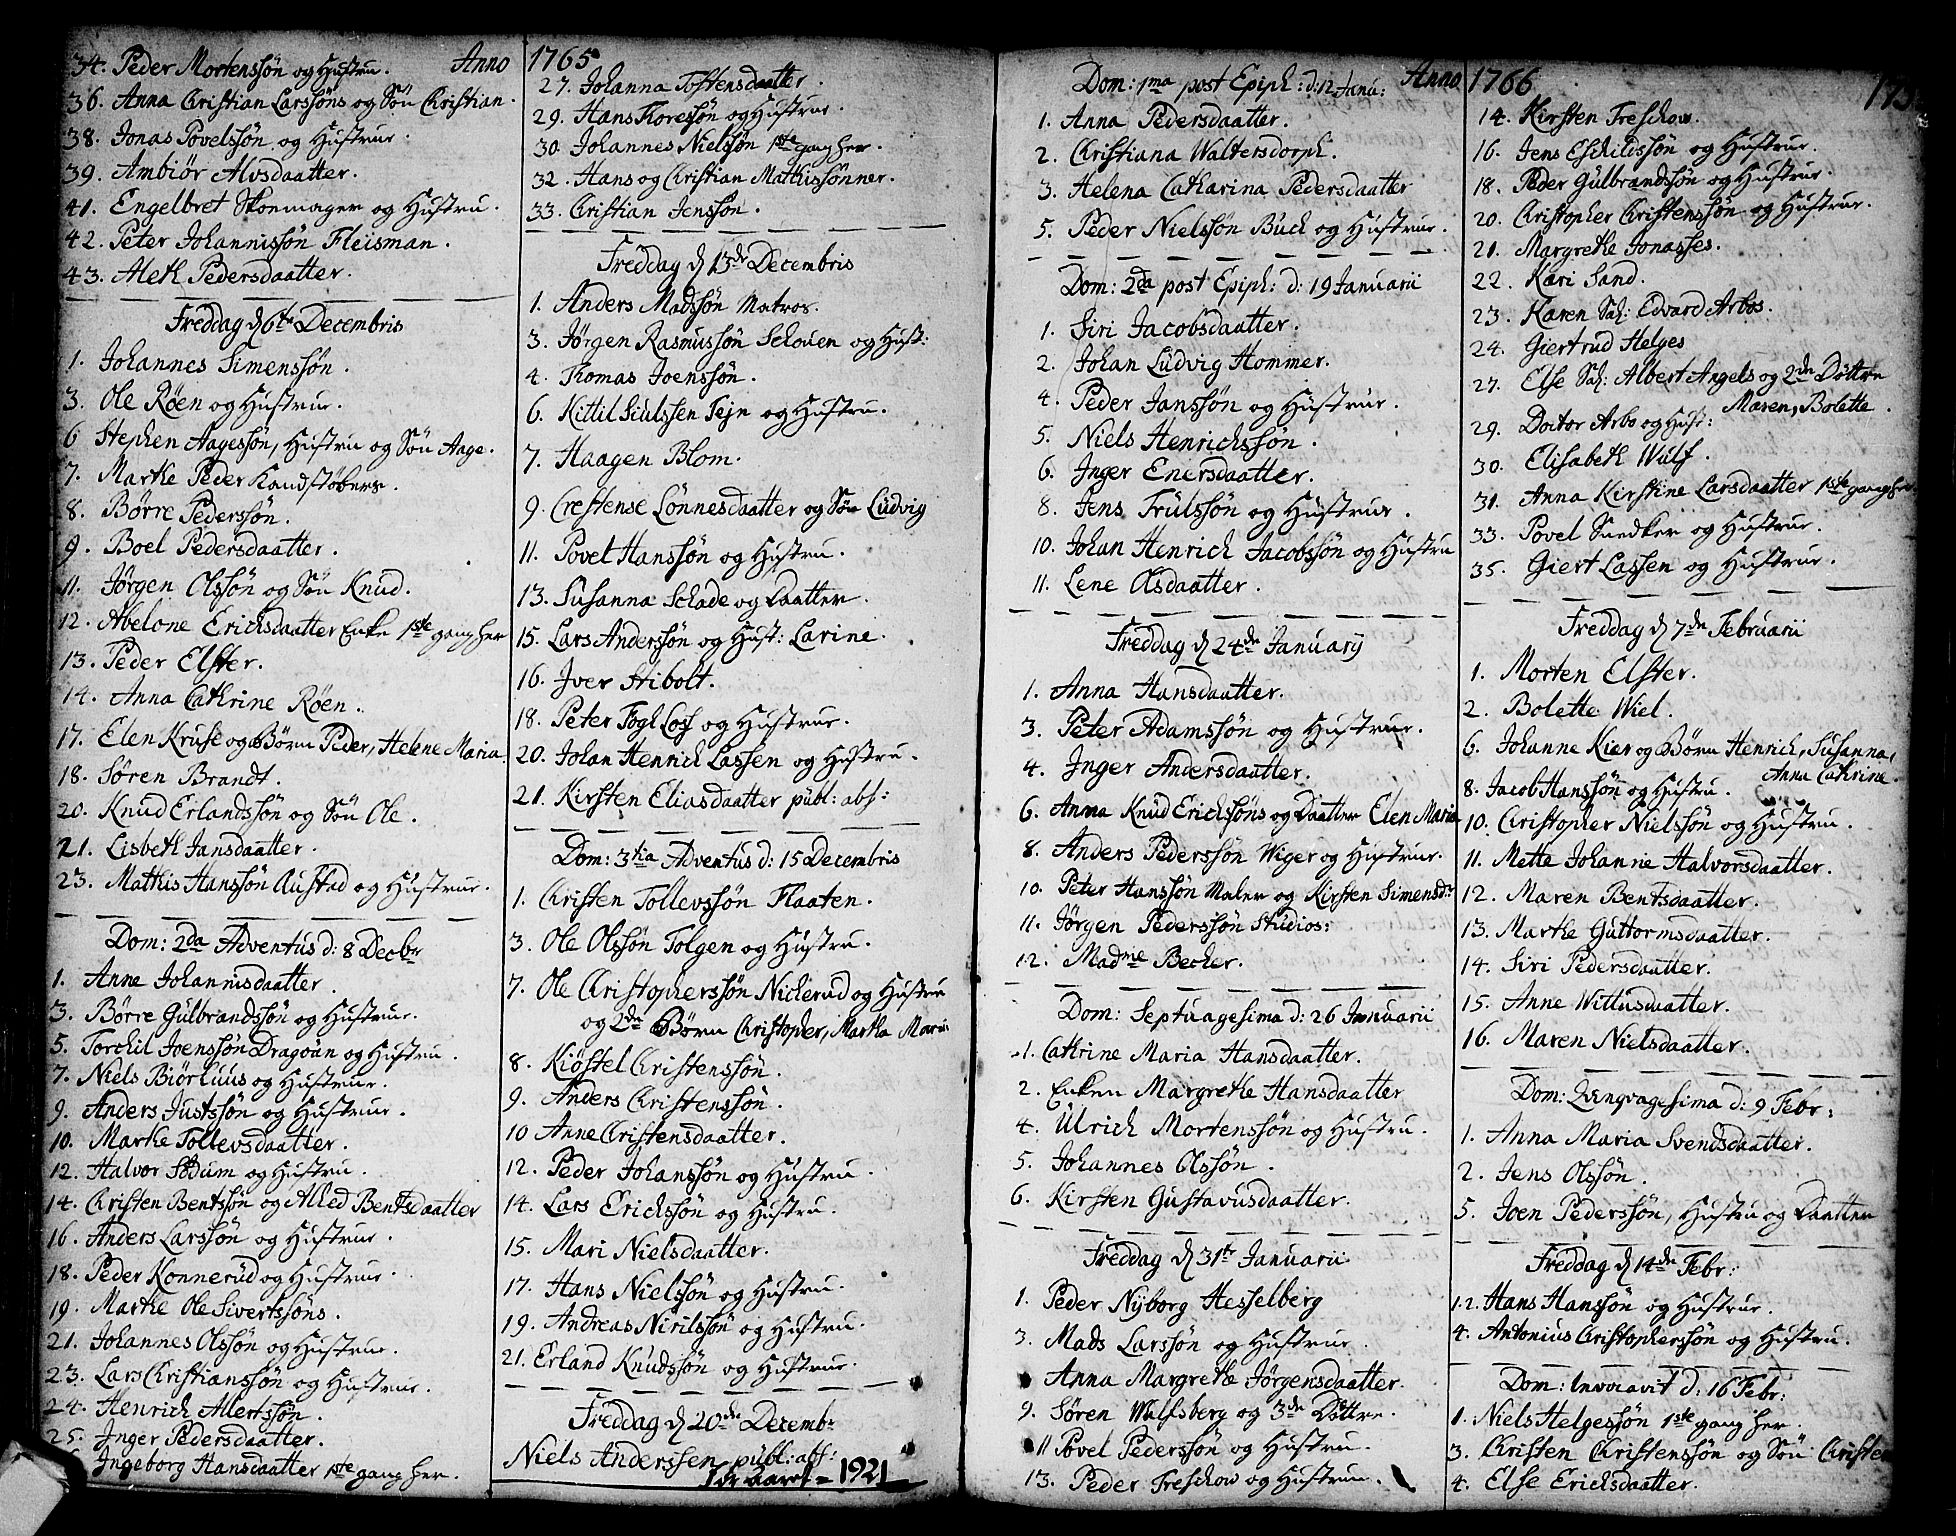 Anno 1765
34. Peder Mortenssøn og Hustru.
36. Anna Christian Larssøns og Søn Christian.
38. Jonas Povelssøn og Hustrue.
39. Ambiør Alvsdaatter.
41. Engelbret Skoemager og Hustru.
42. Peter Johannissøn Fleisman.
43. Aleth Pedersdaatter.
Freddag d 6te Decembris
1. Johannes Simenssøn.
3. Ole Røen og Hustrue.
6 Stephen Aagessøn, Hustru og Søn Aage.
7. Marthe Peder Kandstøbers.
8. Børre Pederssøn.
9. Boel Pedersdaatter.
11. Jørgen Olssøn og Søn Knud.
12. Abelone Erichsdaatter Enke 1ste gang her
13. Peder Elster.
14. Anna Cathrine Røen.
17. Elen Kruse og Børn Peder, Helene Maria
18. Søren Brandt.
20. Knud Erlandssøn og Søn Ole.
21. Lisbeth Jansdaatter.
23. Mathis Hanssøn Austad og Hustrue.
Dom: 2da Adventus d: 8 Decbr
1. Anne Johannisdaatter.
3. Børre Gulbrandssøn og Hustrue.
5. Torchil Joenssøn Dragoun og Hustru.
7. Niels Biørluus og Hustrue.
9. Anders Justssøn og Hustrue.
10. Marthe Tollevsdaatter.
12. Halvor Sødum og Hustru.
14. Christen Bentssøn og Alled Bentsdaatter
16. Anders Larssøn og Hustrue.
18. Peder Konnerud og Hustrue.
19. Marthe Ole Sivertssøns.
21. Johannes Olssøn og Hustrue.
23. Lars Christianssøn og Hustrue.
24. Henrich Allertssøn.
25. Inger Pedersdaatter.
Ingeborg Hansdaatter 1ste gang her.
27. Johanna Tostensdaatter.
29. Hans Toressøn og Hustrue.
30. Johannes Nielssøn 1ste gang her.
32. Hans og Christian Mathissønner.
33. Christian Jenssøn.
Freddag d 13de Decembris
1. Anders Madssøn Matros.
3. Jørgen Rasmussøn Schouen og Hust:
4. Thomas Joenssøn.
6. Kittil Siulssen Tejn og Hustru.
7. Haagen Blom.
9. Chrestense Lønnesdaatter og Søn Ludvig
11. Povel Hanssøn og Hustru.
13. Susanna Schade og Daatter.
15. Lars Anderssøn og Hust: Larine.
16. Iver Stibolt.
18. Peter Fogl Loss og Hustrue.
20. Johan Henrich Lassen og Hustru.
21. Kirsten Eliasdaatter publ: abs:
Dom: 3tia Adventus d: 15 Decembris
1. Christen Tollevssøn Flaaten.
3. Ole Olssøn Tolgen og Hustru.
7. Ole Christopherssøn Nicherud og Hustru
og 2de Børn Christopher, Martha Maria
8. Kiøstel Christenssøn.
9. Anders Christenssøn.
10 Anne Christensdaatter.
12. Peder Johanssøn og Hustru
14. Lars Erichssøn og Hustru.
15. Mari Nielsdaatter.
17. Hans Nielssøn og Hustru
19. Andreas Nirilssøn og Hustru.
21. Erland Knudssøn og Hustrue.
Freddag d 20de Decembr
Niels Anderssen publ: abs:
1921
Anno 1766
Dom: 1ma post Epiph: d: 12 Janu:
1. Anna Pedersdaatter.
2. Christiana Waltersdorph.
3. Helena Catharina Pedersdaatter
5. Peder Nielssøn Buch og Hustrue.
Dom: 2da post Epiph: d: 19 Januarii
1. Siri Jacobsdaatter.
2. Johan Ludvig Hommer.
4. Peder Janssøn og Hustrue.
5. Niels Henrichssøn.
6. Inger Enersdaatter.
8. Jens Trulssøn og Hustrue.
10. Johan Henrich Jacobssøn og Hustru
11. Lene Olsdaatter.
Freddag d 24de Januarij
1. Anna Hansdaatter.
3. Peter Adamssøn og Hustrue.
4. Inger Andersdaatter.
6. Anna Knud Erichssøns og Daatter Elen Maria
8. Anders Pederssøn Wiger og Hustrue.
10. Peter Hanssøn Maler og Kirsten Simensdr
11. Jørgen Pederssøn Studios:
12. Madme Becher.
Dom: Septuagesima d: 26 Januarii
1. Cathrine Maria Hansdaatter.
2. Enken Margrethe Hansdaatter
4. Ulrich Mortenssøn og Hustru.
5. Johannes Olssøn.
6. Kirsten Gustavusdaatter.
Freddag d 31te Januarii
1. Peder Nyborg Hesselberg
3. Mads Larssøn og Hustrue.
Anna Margrethe Jørgensdaatter.
9. Søren Wulfsberg og 3de Døttre.
11 Povel Pederssøn og Hustru.
13. Peder Treschow og Hustrue.
14. Kirsten Treschow.
16. Jens Eschildssøn og Hustrue.
18. Peder Gulbrandssøn og Hustrue.
20. Christopher Christenssøn og Hustrue.
21. Margrethe Jonasses.
22. Kari Sand.
23. Karen Sal: Edvard Arbos.
24. Giertrud Helges
27. Else Sal: Albert Angels og 2de Døttre
Maren, Bolette.
29. Doctor Arbo og Hust:
30. Elisabeth Wulf.
31. Anna Kirstine Larsdaatter 1ste gang her
33. Povel Snedker og Hustrue.
35. Giert Lassen og Hustrue.
Freddag d 7de Februarii
1. Morten Elster.
2. Bolette Wiel.
6. Johanne Kier og Børn Henrich, Susanna,
Anna Cathrine.
8. Jacob Hanssøn og Hustru.
10. Christopher Nielssøn og Hustru.
11. Mette Johanne Halvorsdaatter.
12. Maren Bentsdaatter.
13. Marthe Guttormsdaatter.
14. Siri Pedersdaatter.
15. Anne Wittusdaatter.
16. Maren Nielsdaatter.
Dom: Qvinqvagesima d: 9 Febr:
1. Anna Maria Svendsdaatter.
2. Jens Olssøn.
5. Joen Pederssøn, Hustru og Daatter
Freddag d 14de Febr:
1.2. Hans Hanssøn og Hustrue.
4. Antonius Christopherssøn og Hustru.
Dom: Invocavit d: 16 Febr:
1. Niels Helgessøn 1ste gang her.
3. Christen Christenssøn og Søn Christen
4. Else Erichsdaatter.